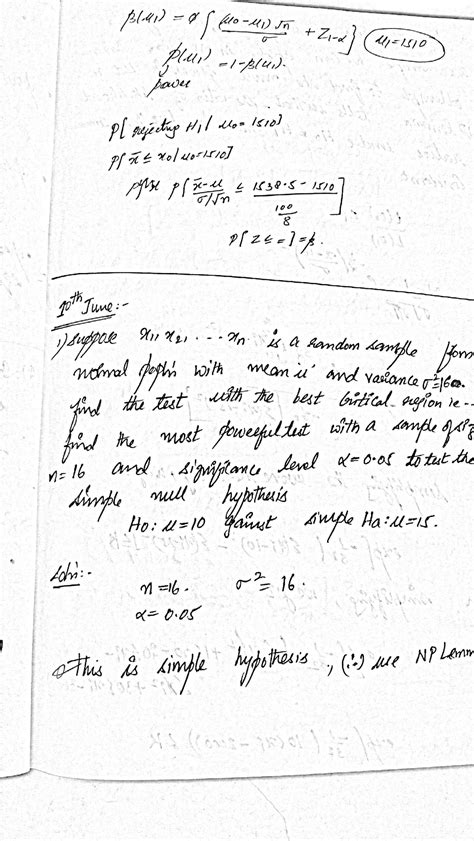 β(μ1) = φ{ (μ0-μ1)√n / σ + Z1-α } μ1=1510
β(μ1) = 1-β(μ1).
power
P[ rejecting H1 / μ0 = 1510]
P[ x̄ ≤ x0 / μ0=1510]
P[ x̄-μ / σ/√n ≤ 1538.5 - 1510 / 100/8 ]
P[ Z ≤ = ] = β.
10th June:-
1) suppose x1, x2, ... xn. is a random sample form
normal pop'n with mean 'μ' and variance σ²=16
find the test with the best critical region ie --
find the most powerful test with a sample of siz
n=16 and significance level α=0.05 to test the
simple null hypothesis
Ho: μ=10 against simple Ha: μ=15.
Soln:-
n=16. σ²= 16.
α= 0.05
This is simple hypothesis ., (∴) use NP Lemm